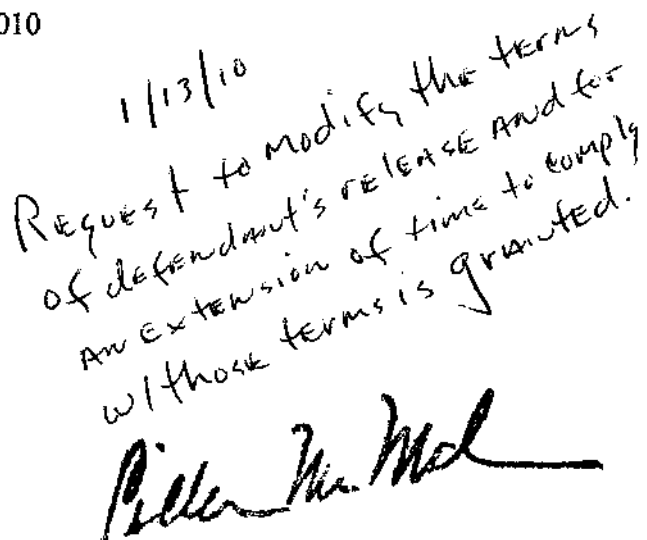 010
1/13/10
Request to modify the terms
of defendant's release and for
an extension of time to comply
w/ those terms is granted.